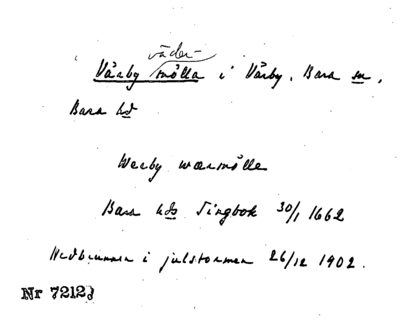 väder-
Värby mölla i Värby, Bara sn,
Bara hd
Werby wærmölle
Bara hds Tingbok 30/1 1662
Nedbrunnen i julstormen 26/12 1902.
Nr 7212